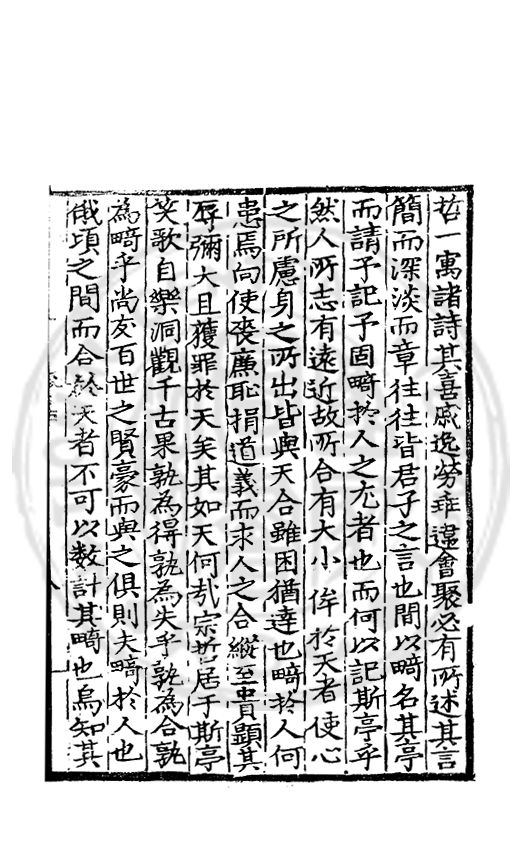 哲一寓諸詩其喜戚逸勞乖違會聚必有所述其言
簡而深淡而章往往皆君子之言也間以畸名其亭
而請予記予固畸於人之尤者也而何以記斯亭乎
然人所志有遠近故所合有大小侔於天者使心
之所慮身之所出皆與天合雖困猶達也畸於人何
患焉向使喪廉恥捐道義而求人之合縱至貴顯其
辱彌大且獲罪於天矣其如天何哉宗哲居于斯亭
笑歌自樂洞觀千古果孰為得孰為失乎孰為合孰
為畸乎尚友百世之賢豪而與之俱則夫畸於人也
俄頃之間而合於天者不可以數計其畸也烏知其